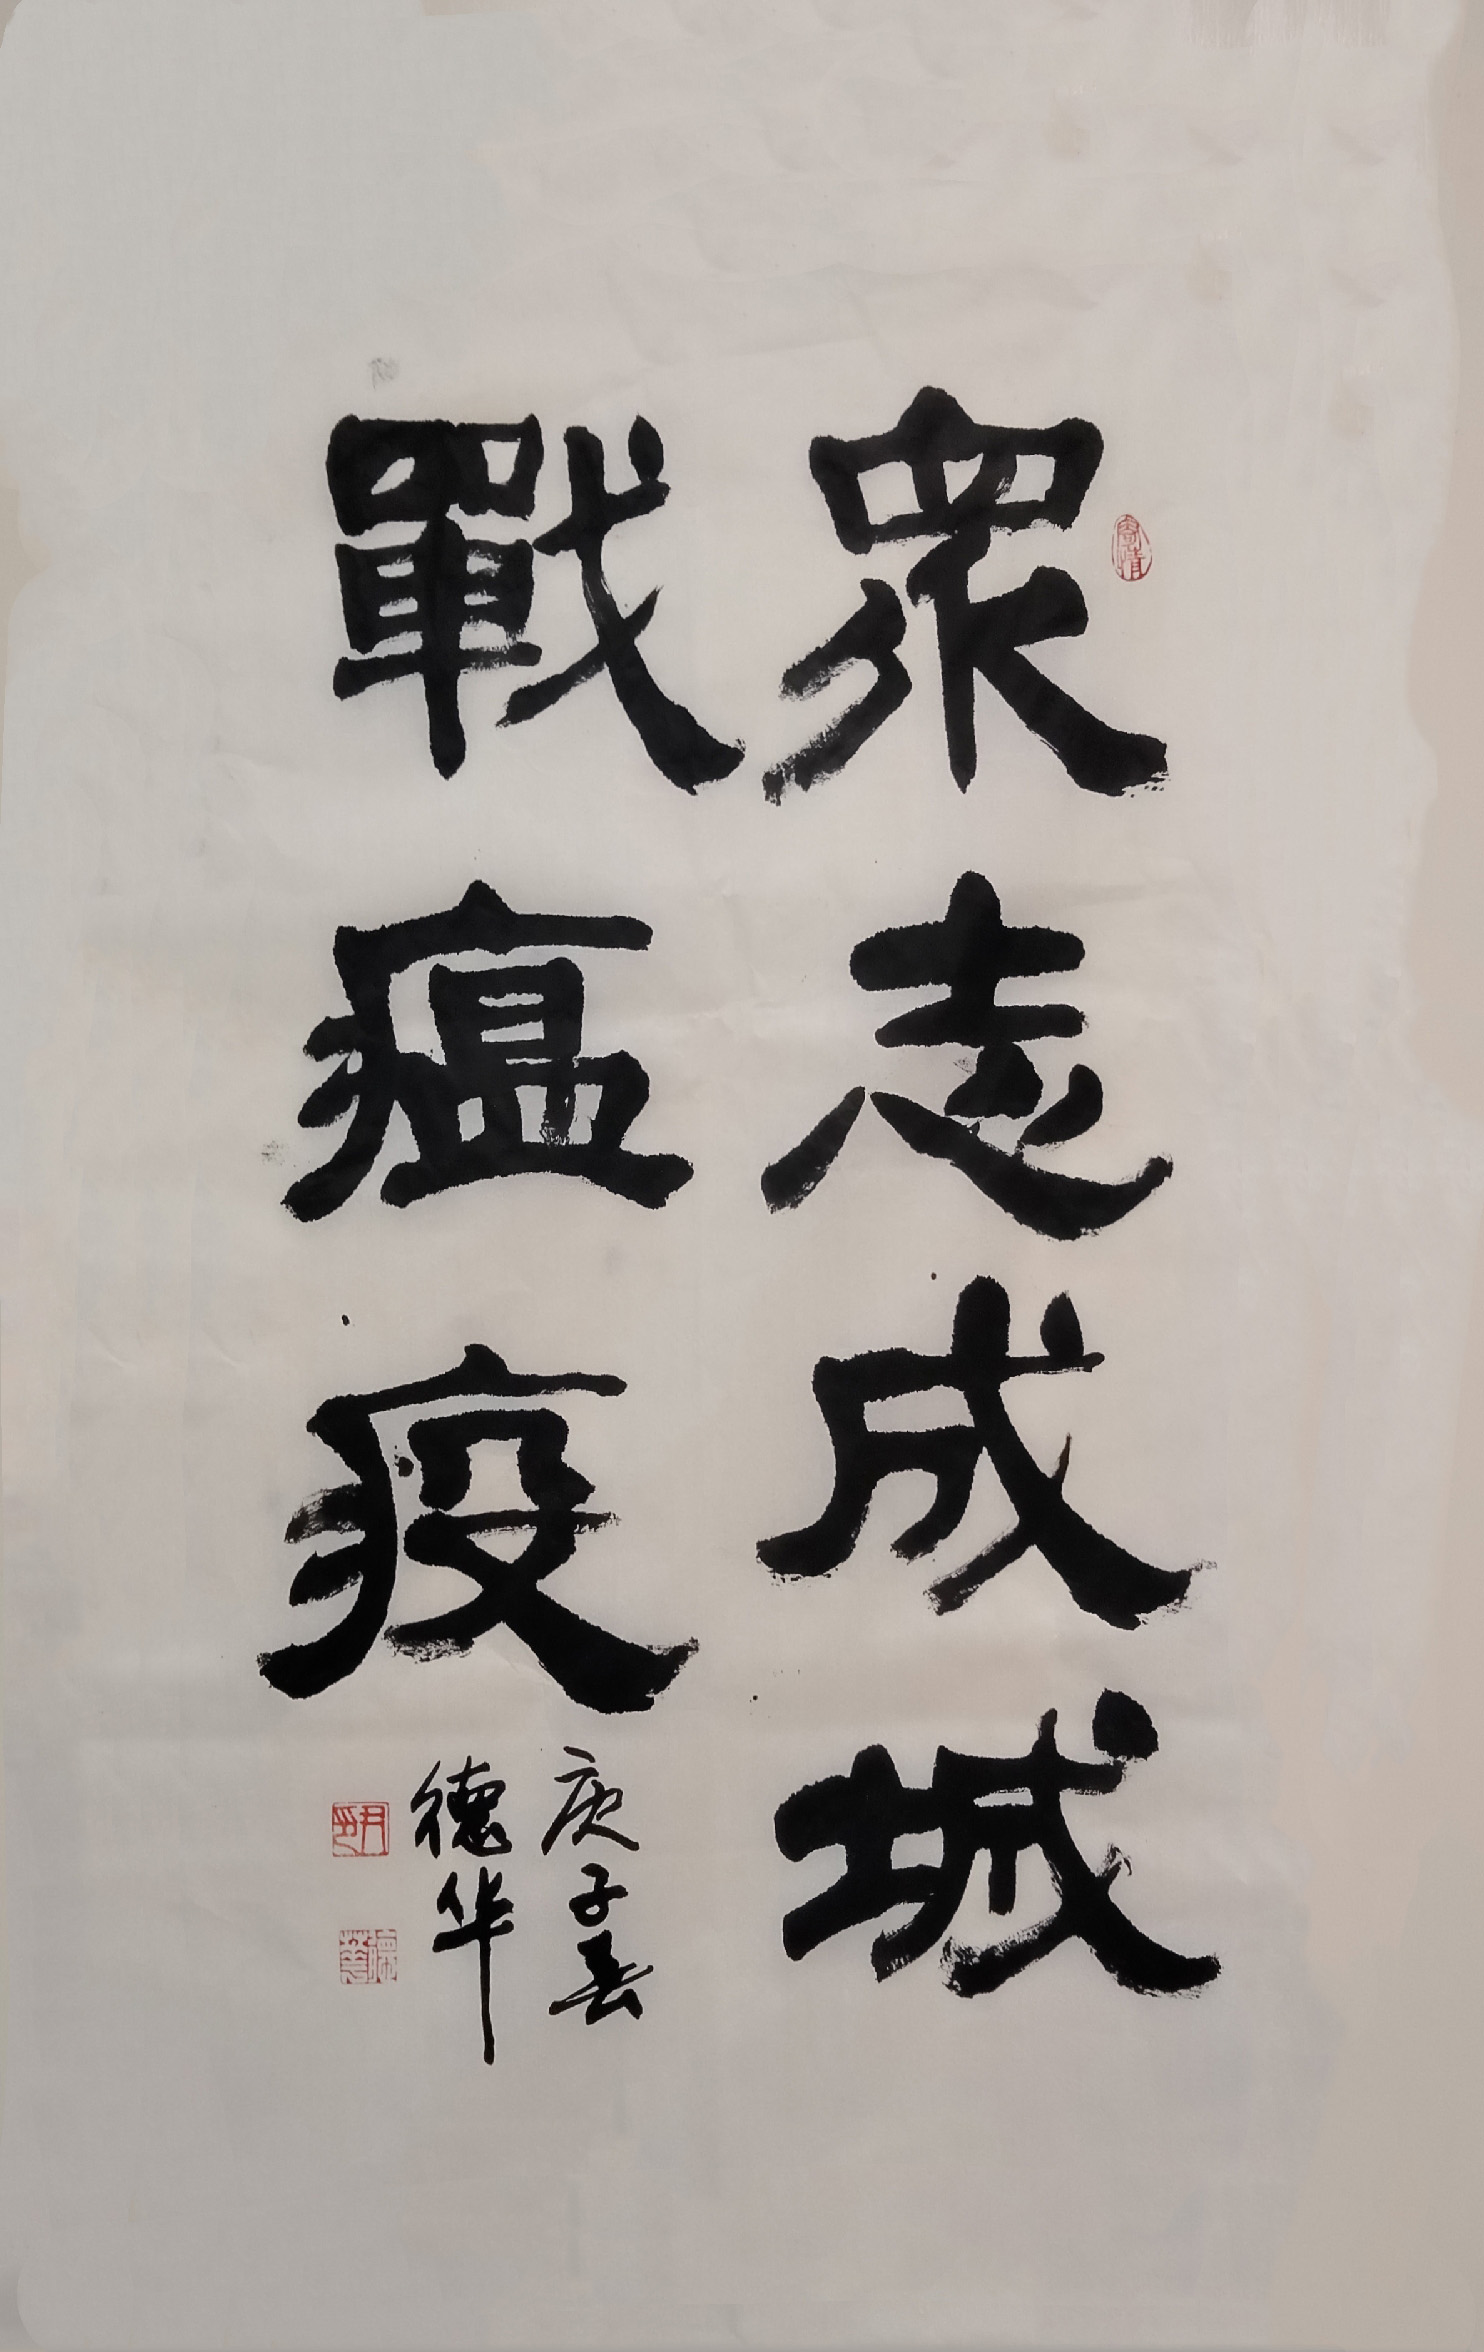 眾志成城
戰瘟疫
庚子春
德华
寄情